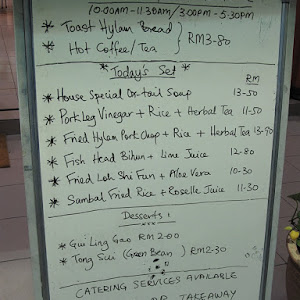 10:00AM - 11:30AM / 3:00PM - 5:30PM
* Toast Hylam Bread
* Hot Coffee / Tea } RM3-80
* Today's Set *
RM
* House Special Ox-tail Soup 13-50
* Pork Leg Vinegar + Rice + Herbal Tea 11-50
* Fried Hylam Pork Chop + Rice + Herbal Tea 13-90
* Fish Head Bihun + Lime Juice 12-80
* Fried Loh Shi Fun + Aloe Vera 10-30
* Sambal Fried Rice + Roselle Juice 11-30
Desserts :
* Gui Ling Gao RM 2-00
* Tong Sui (Green Bean) RM2-30
CATERING SERVICES AVAILABLE
TAKEAWAY